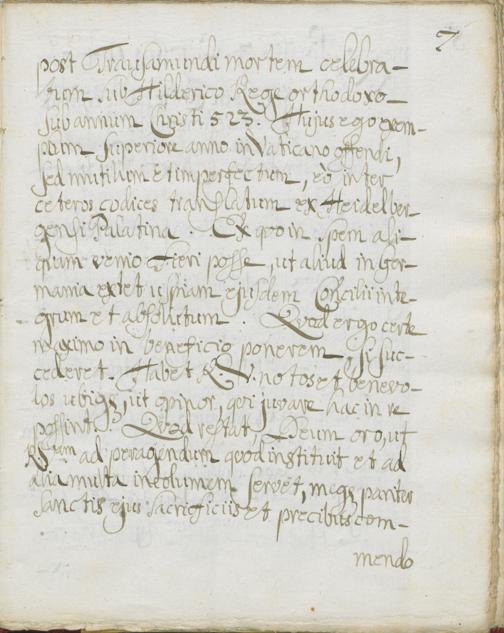 7
post Transamundi mortem celebra-
tum sub Hilderico Rege orthodoxo
sub annum Christi 523. Hujus ego exem-
plum superiore anno in Vaticano offendi,
sed mutilum et imperfectum, eo inter
ceteros codices translatum ex Heidelber
gensi Palatina. Ex quo in spem ali-
quam venio fieri posse, ut aliud in ger-
mania extet uspiam ejusdem Concilii inte-
grum et absolutum. Quod ergo certe
maximo in beneficio ponerem, si suc-
cederet. Habet R. V. notos et benevo-
los ubique, ut opinor, qui juvare hac in re
possint. Quod restat, Deum oro, ut
R. Vtram ad peragendum quod instituit et ad
alia multa incolumem servet, meque pariter
sanctis ejus sacrificiis et precibus com-
mendo